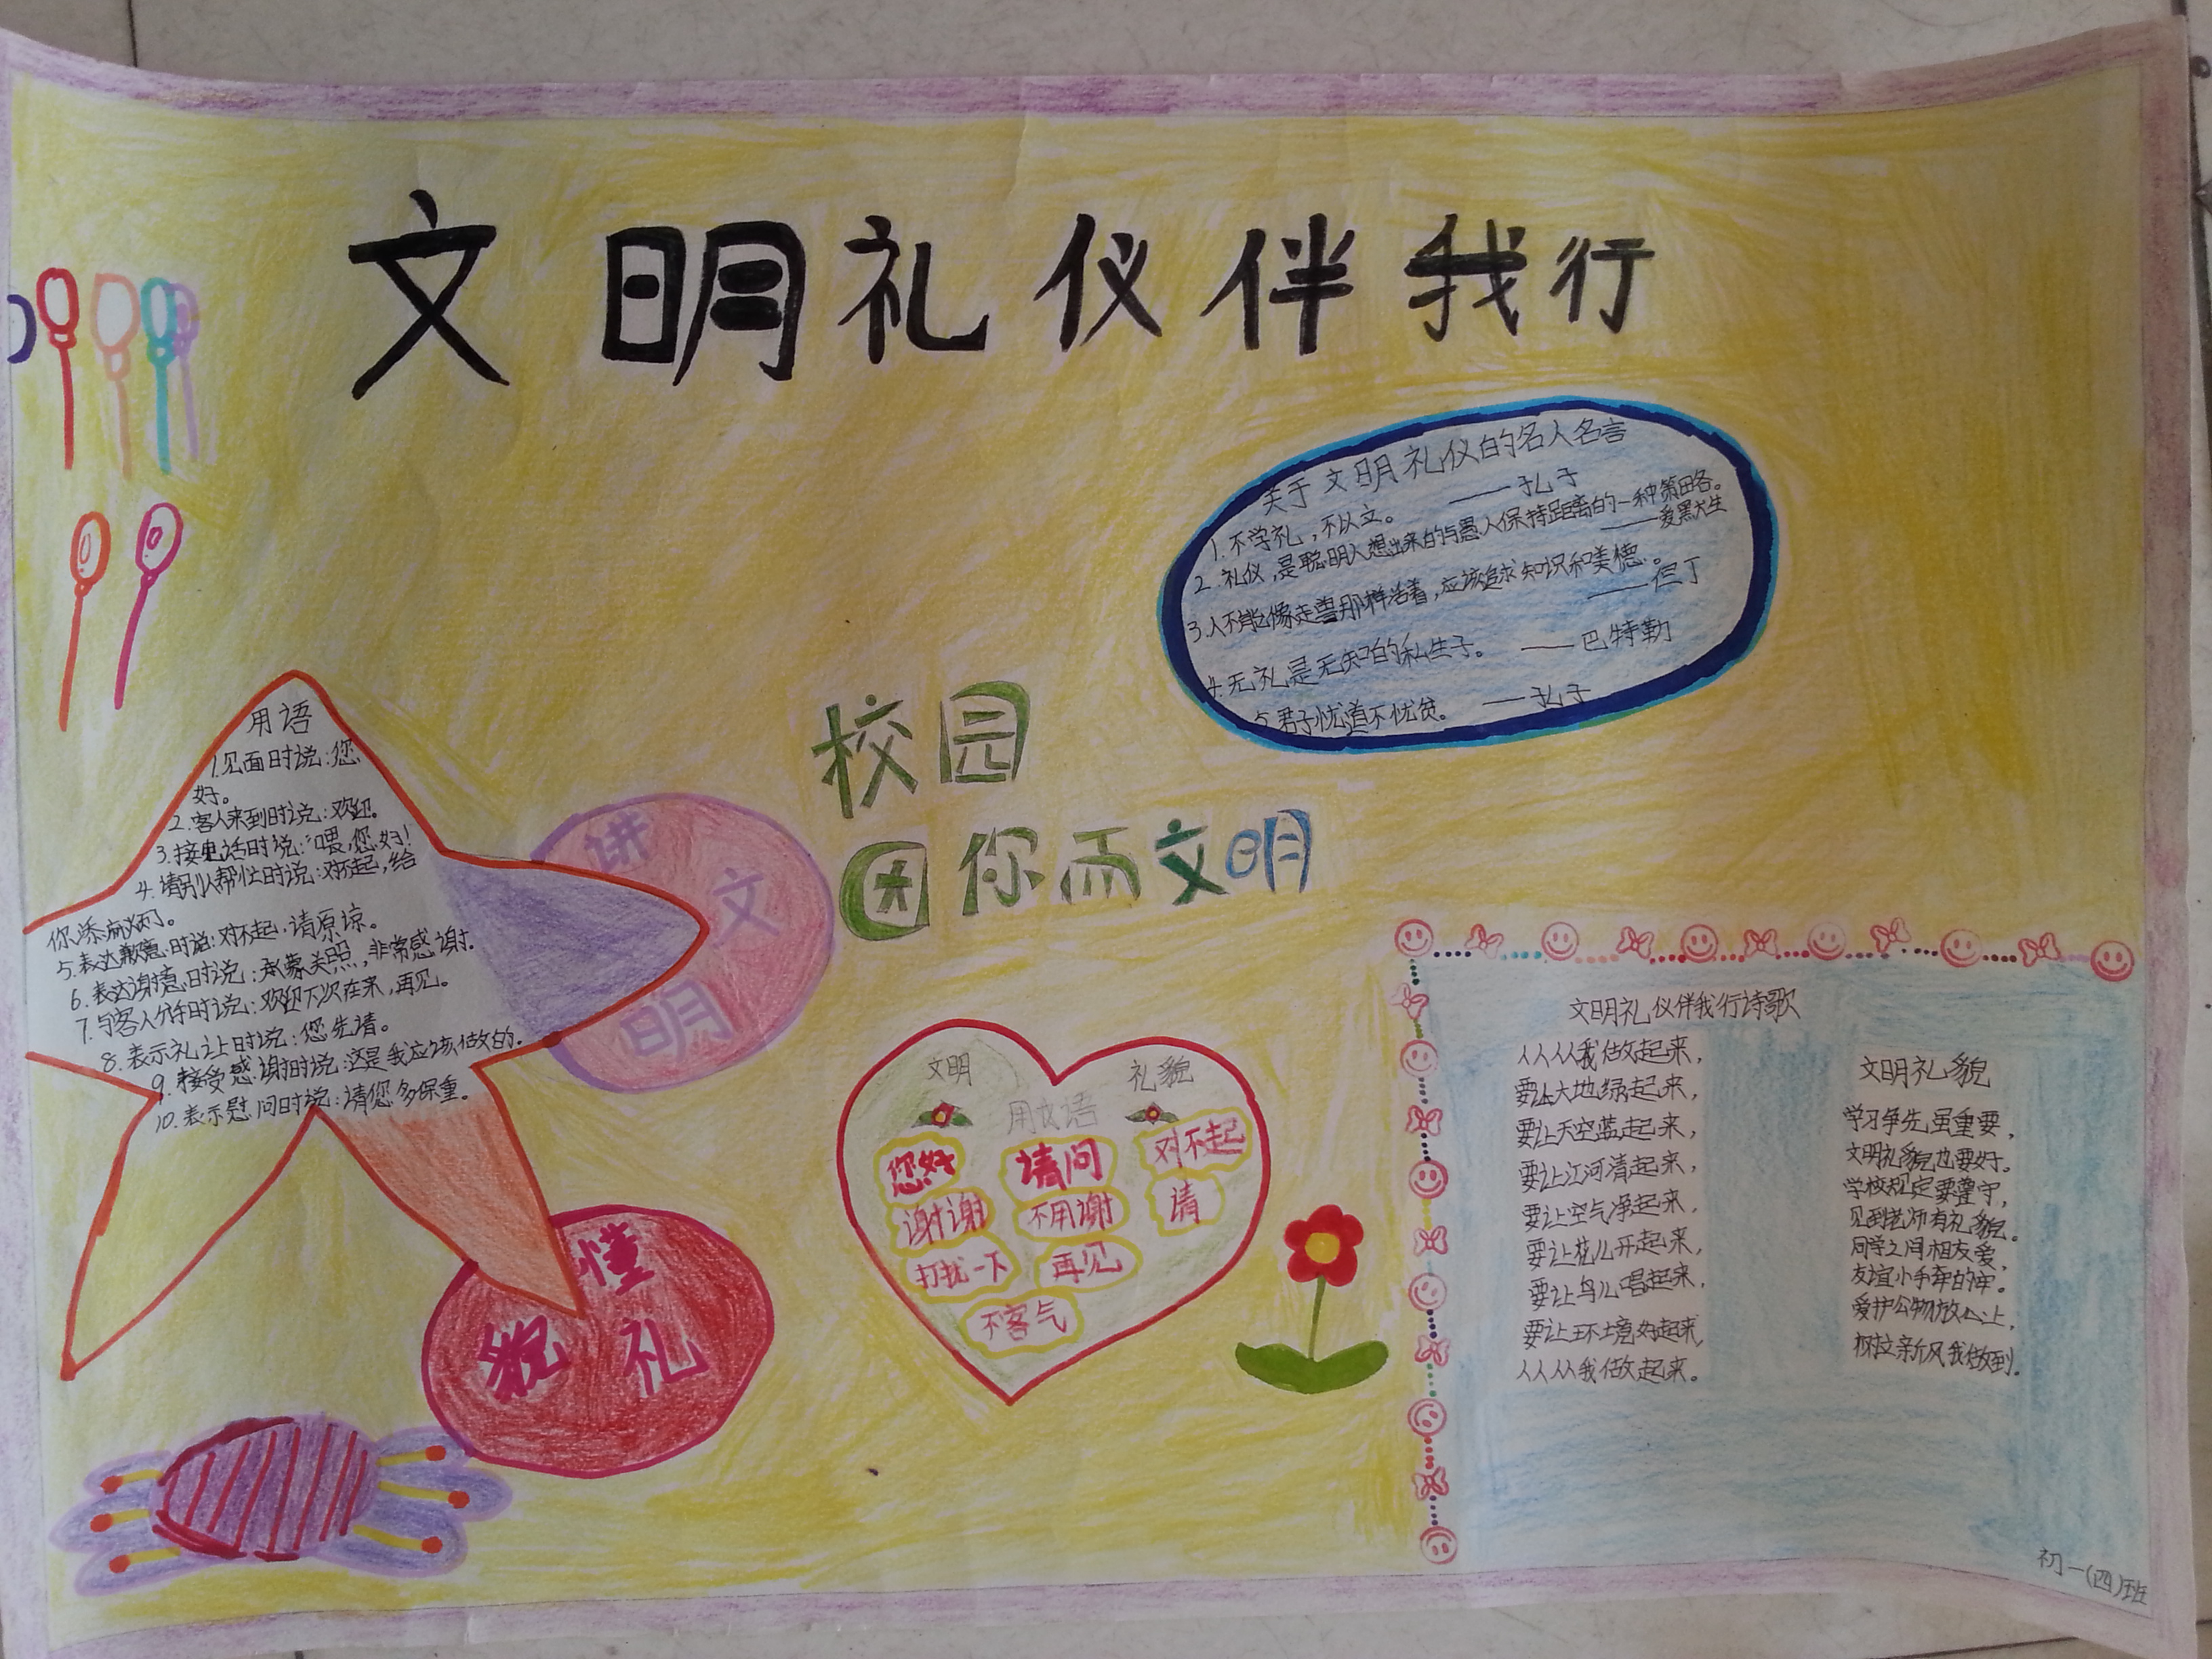 文明礼仪伴我行
关于文明礼仪的名人名言
1.不学礼，不以立。 ——孔子
2.礼仪，是聪明人想出来的与愚人保持距离的一种策略。
——爱默生
3.人不能像走兽那样活着，应该追求知识和美德。
——但丁
4.无礼是无知的私生子。 ——巴特勒
5.君子忧道不忧贫。 ——孔子
校园
因你而文明
用语
1.见面时说：您
好。
2.客人来到时说：欢迎。
3.接电话时说：“喂，您好！
4.请别人帮忙时说：对不起，给
你添麻烦了。
5.表达歉意时说：对不起，请原谅。
6.表达谢意时说：承蒙关照，非常感谢.
7.与客人分手时说：欢迎下次在来，再见。
8.表示礼让时说：您先请。
9.接受感谢时说：这是我应该做的.
10.表示慰问时说：请您多保重。
讲
文
明
懂
礼
貌
文明 礼貌
用文语
您好 请问 对不起
谢谢 不用谢 请
打扰一下 再见
不客气
文明礼仪伴我行诗歌
人人从我做起来，
要让大地绿起来，
要让天空蓝起来，
要让江河清起来，
要让空气净起来，
要让花儿开起来，
要让鸟儿唱起来，
要让环境好起来，
人人从我做起来。
文明礼貌
学习争先虽重要，
文明礼貌也要好。
学校规定要遵守，
见到老师有礼貌。
同学之间相友爱，
友谊小手牵的牢。
爱护公物放心上，
树立新风我做到.
初一(四)班